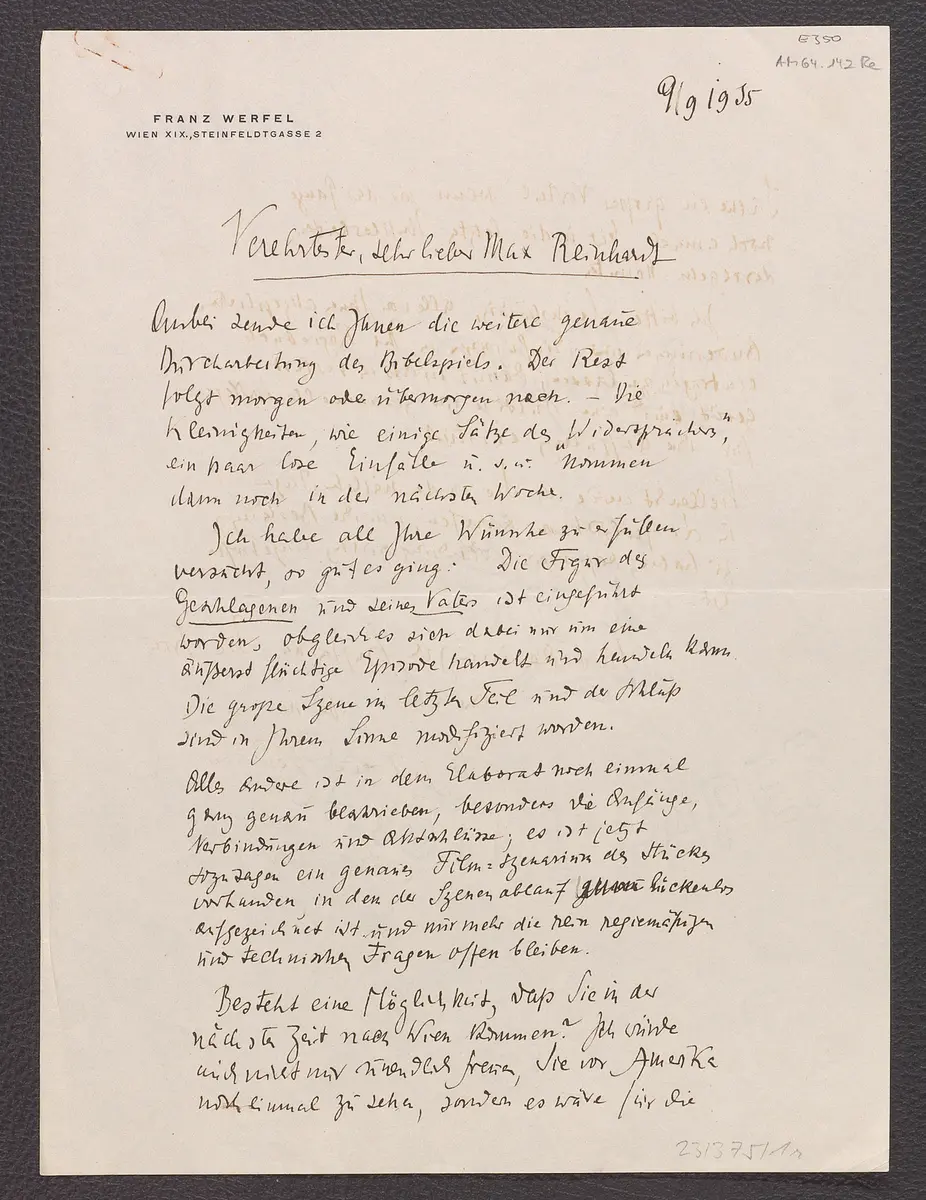 E350
AM 64.142 Re
9/9 1935
FRANZ WERFEL
WIEN XIX., STEINFELDTGASSE 2
Verehrtester, sehr lieber Max Reinhardt
Anbei sende ich Ihnen die weitere genaue
Durcharbeitung des Bibelspiels. Der Rest
folgt morgen oder übermorgen nach. – Die
Kleinigkeiten, wie einige Sätze des „Widersprechers",
ein paar lose Einfälle u. s. w. kommen
dann noch in der nächsten Woche.
Ich habe all Ihre Wünsche zu erfüllen
versucht, so gut es ging: Die Figur des
Geschlagenen und seines Vaters ist eingeführt
worden, obgleich es sich dabei nur um eine
äußerst flüchtige Episode handelt und handeln kann.
Die große Szene im letzten Teil und der Schluß
sind in Ihrem Sinne modifiziert worden.
Alles andere ist in dem Elaborat noch einmal
ganz genau beschrieben, besonders die Anfänge,
Verbindungen und Aktschlüsse; es ist jetzt
sozusagen ein genaues Film=Szenarium des Stückes
vorhanden in den der Szenenablauf lückenlos
aufgezeichnet ist und nur mehr die rein regiemäßigen
und technischen Fragen offen bleiben.
Besteht eine Möglichkeit, daß Sie in der
nächsten Zeit nach Wien kommen? Ich würde
mich nicht nur unendlich freuen, Sie vor Amerika
noch einmal zu sehen, sondern es wäre für die
231375/1r